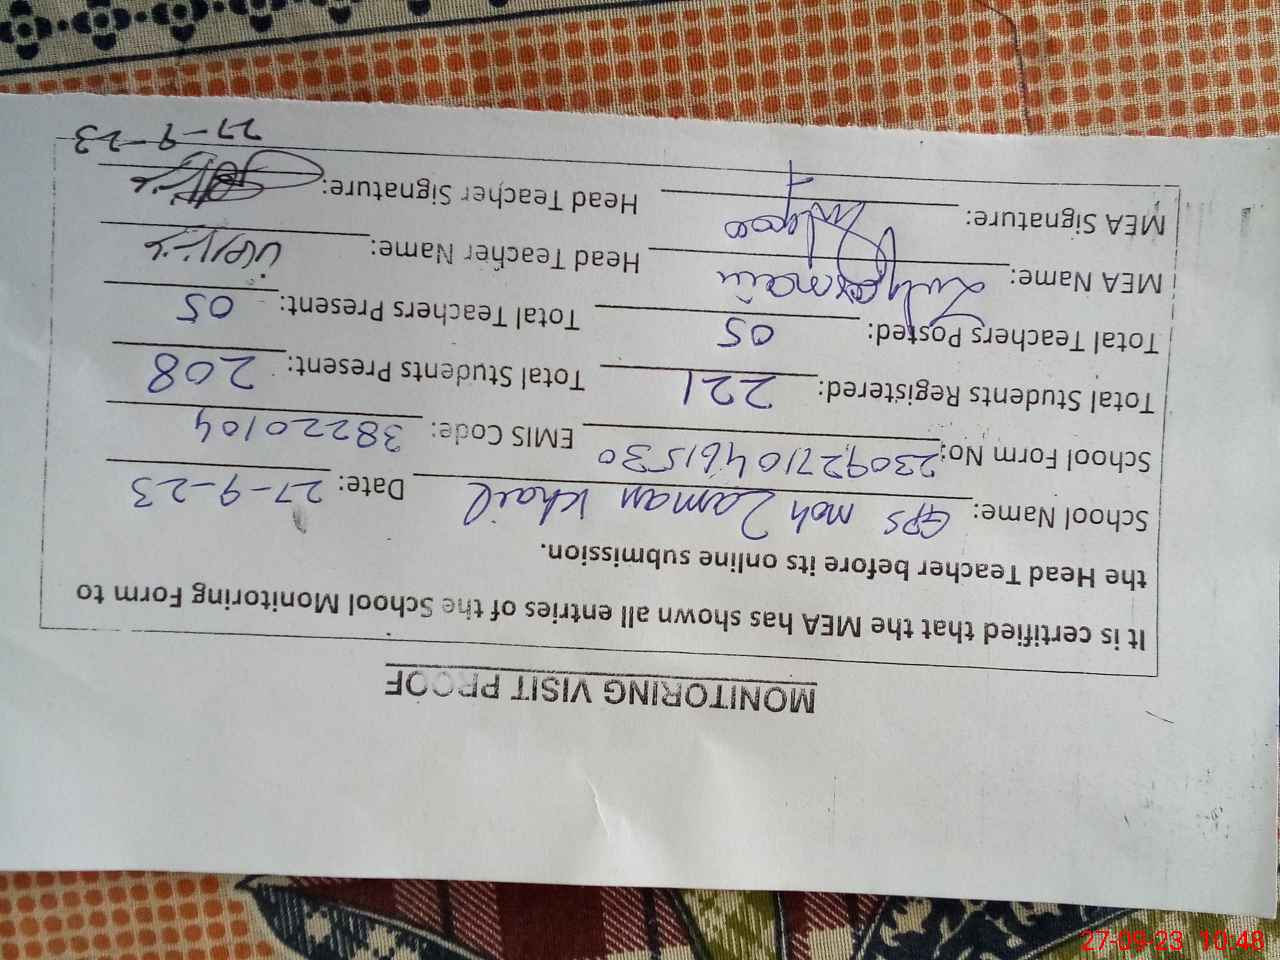 MONITORING VISIT PROOF
It is certified that the MEA has shown all entries of the School Monitoring Form to
the Head Teacher before its online submission.
School Name: GPS moh Zaman Khail Date: 27-9-23
School Form No: 230927104461530 EMIS Code: 38220104
Total Students Registered: 221 Total Students Present: 208
Total Teachers Posted: 05 Total Teachers Present: 05
MEA Name: Zulqarnain Head Teacher Name:
MEA Signature: Head Teacher Signature:
27-9-23
27-09-23 10:48